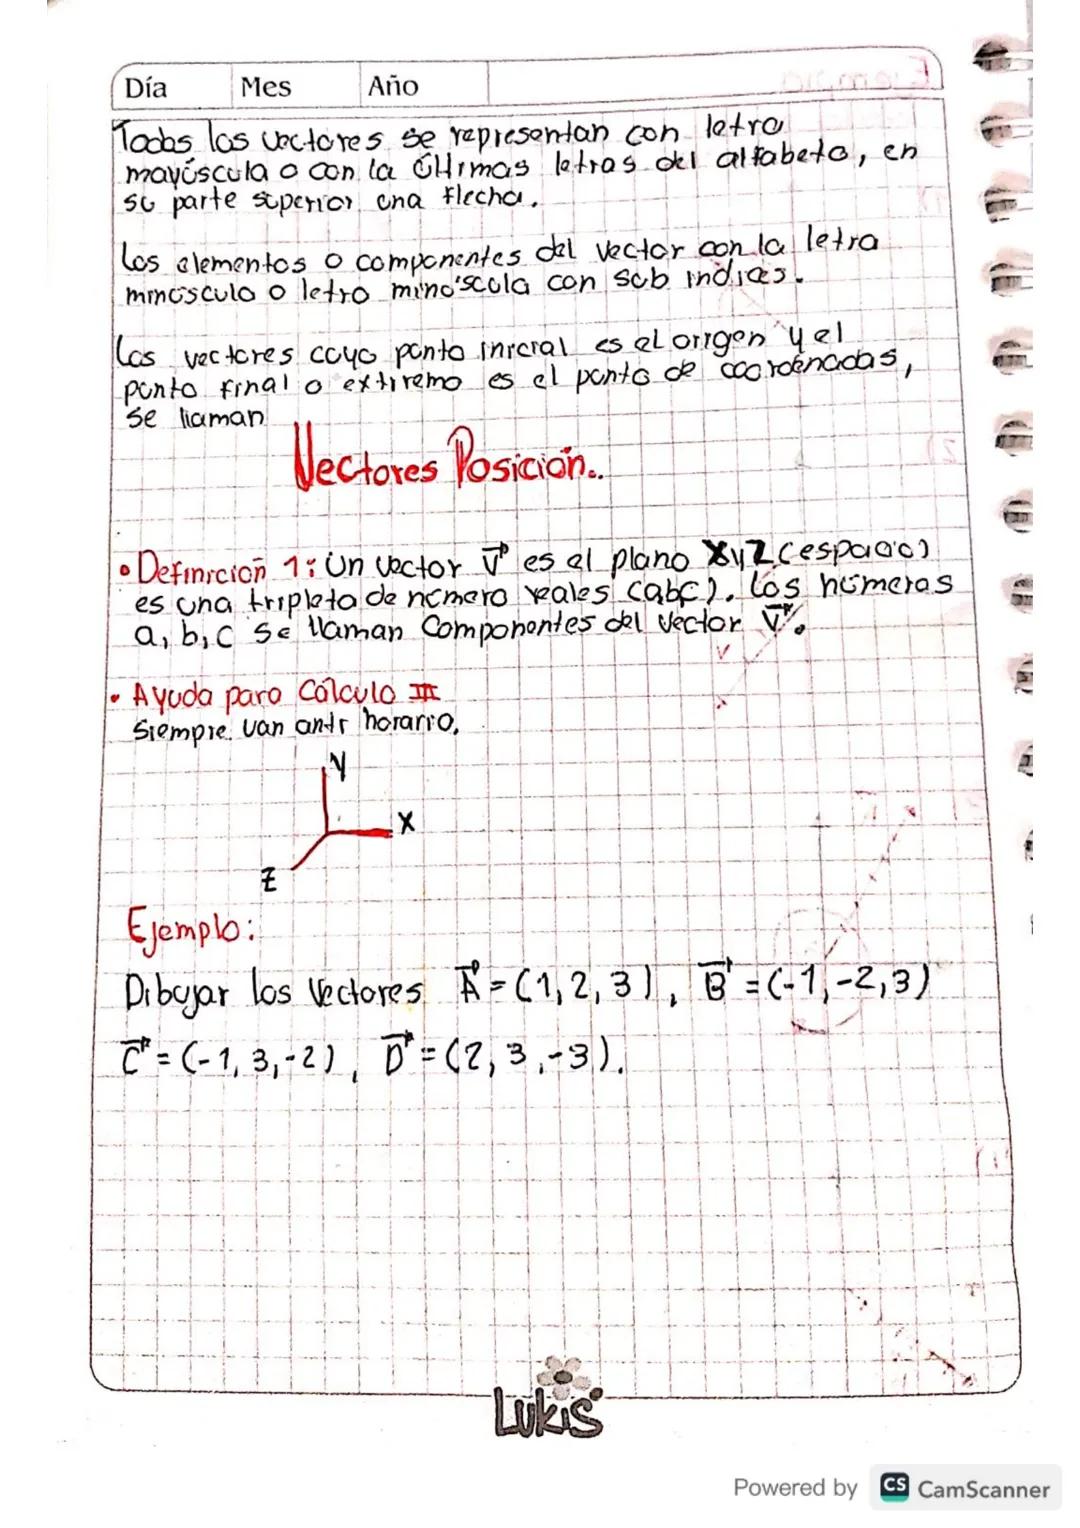 Día Mes Año
Todos los vectores se representan con letra
mayúscula o con la últimas letras del alfabeto, en
su parte superior una flecha.
Los elementos o componentes del vector con la letra
minúsculo o letro minúscula con sub indices.
Los vectores cuyo punto inicial es el origen y el
punto final o extiremo es el punto de coordenadas,
se llaman
Vectores Posición..
• Definición 1: Un vector V⃗ es el plano XyZ (espacio)
es una tripleta de número reales (abc). Los números
a, b, c se llaman Componentes del vector V⃗.
• Ayuda para Cálculo III
Siempre van anti horario.
Y
X
Z
Ejemplo:
Dibujar los Vectores A⃗ = (1, 2, 3), B⃗ = (-1, -2, 3)
C⃗ = (-1, 3, -2), D⃗ = (2, 3, -3).
Lukis
Powered by CS CamScanner